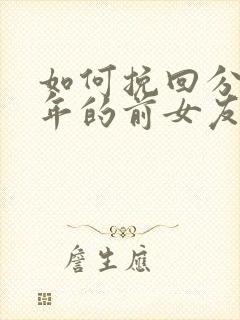 如何挽回分
年的前女友
詹生應